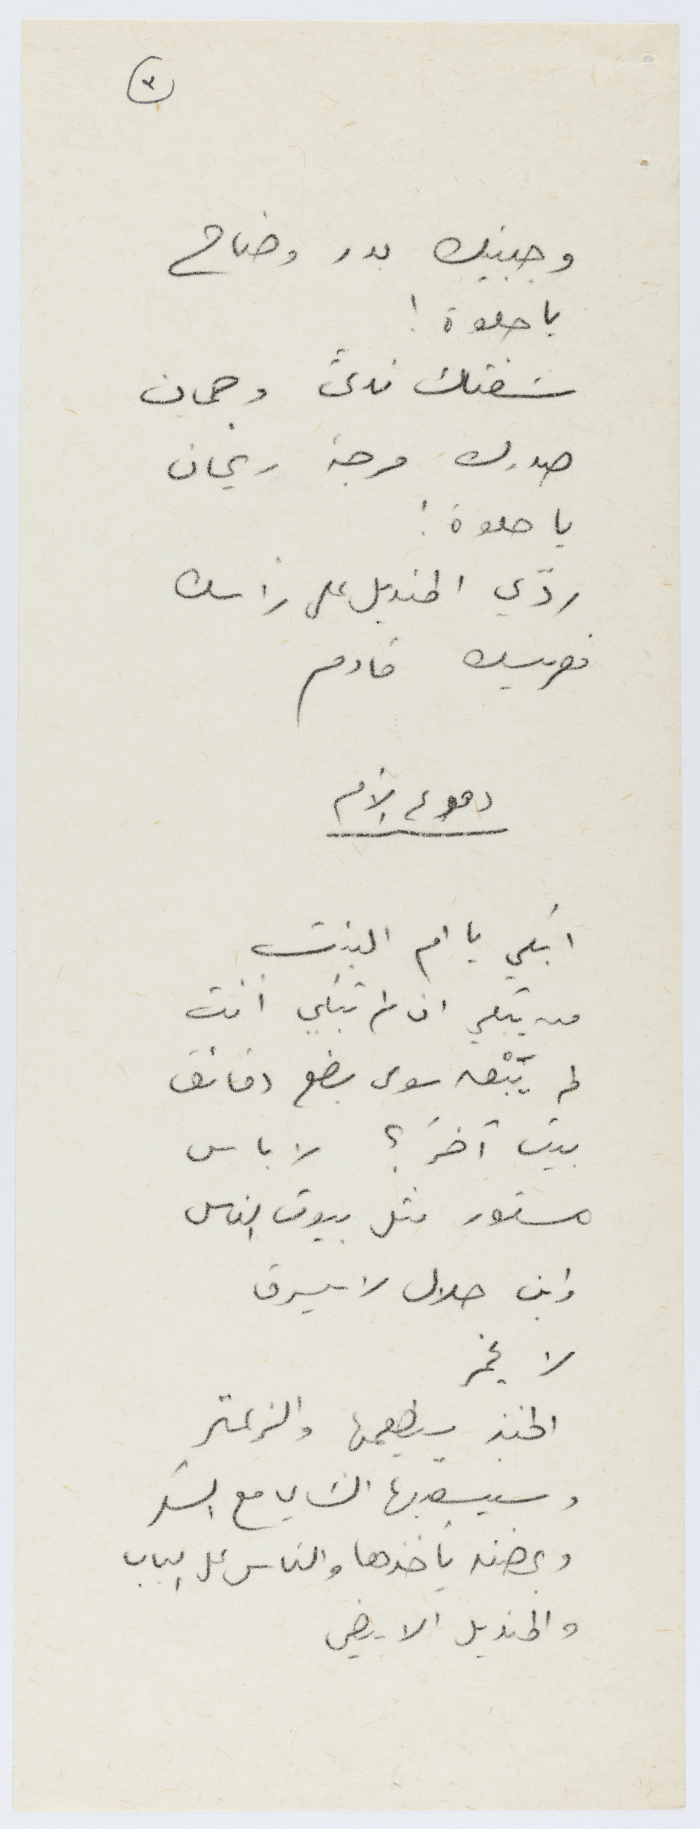 ٣
وجبينك بدر وضاح
يا حلوة !
شفتك ندىً وجمان
صدرك مرجة ريحان
يا حلوة !
ردّي المنديل على رأسك
فعريسك قادم
دموع الأم
ابكي يا ام البنت
من يبكي ان لم تبكي أنت
لم يَبْق سوى بضع دقائق
بيت آخر ؟ لا باس
مستور مثل بيوت الناس
وابن حلال لا يسرق
لا يخمر
الخبز سيطعمها والزعتر
وسيسقيها الشاي مع السكر
وبحضنه يأخذها والناس على الباب
والمنديل الابيض